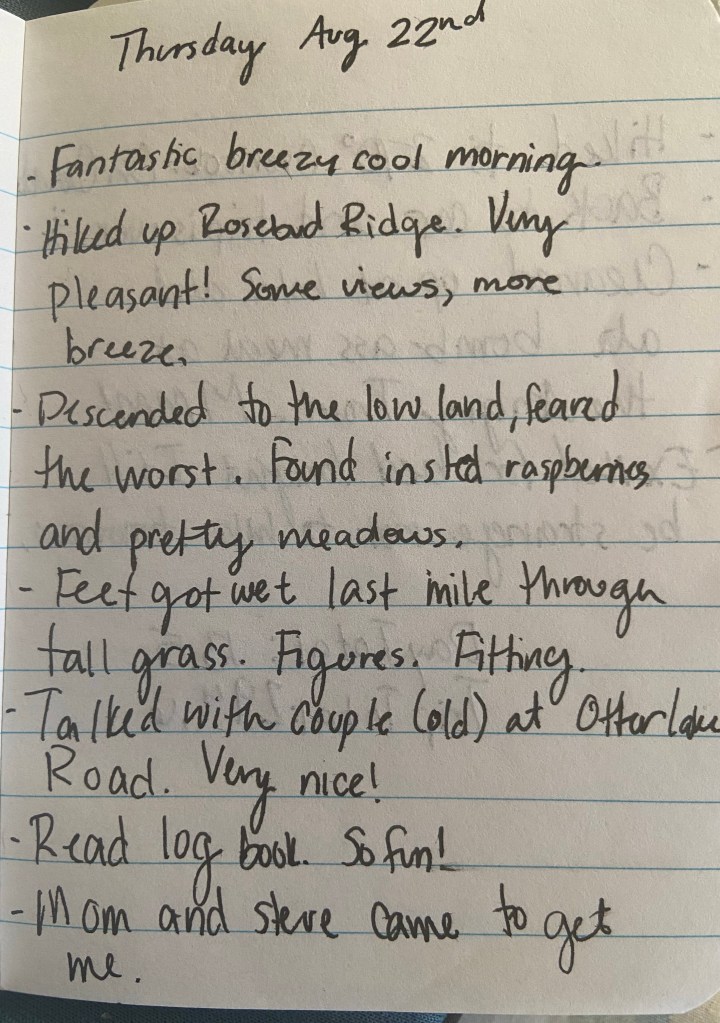 Thursday Aug 22nd
- Fantastic breezy cool morning.
- Hiked up Rosebud Ridge. Very
pleasant! Some views, more
breeze.
- Descended to the low land, feared
the worst. Found insted raspberries
and pretty meadows.
- Feet got wet last mile through
tall grass. Figures. Fitting.
- Talked with couple (old) at Otterlake
Road. Very nice!
- Read log book. So fun!
- Mom and steve came to get
me.